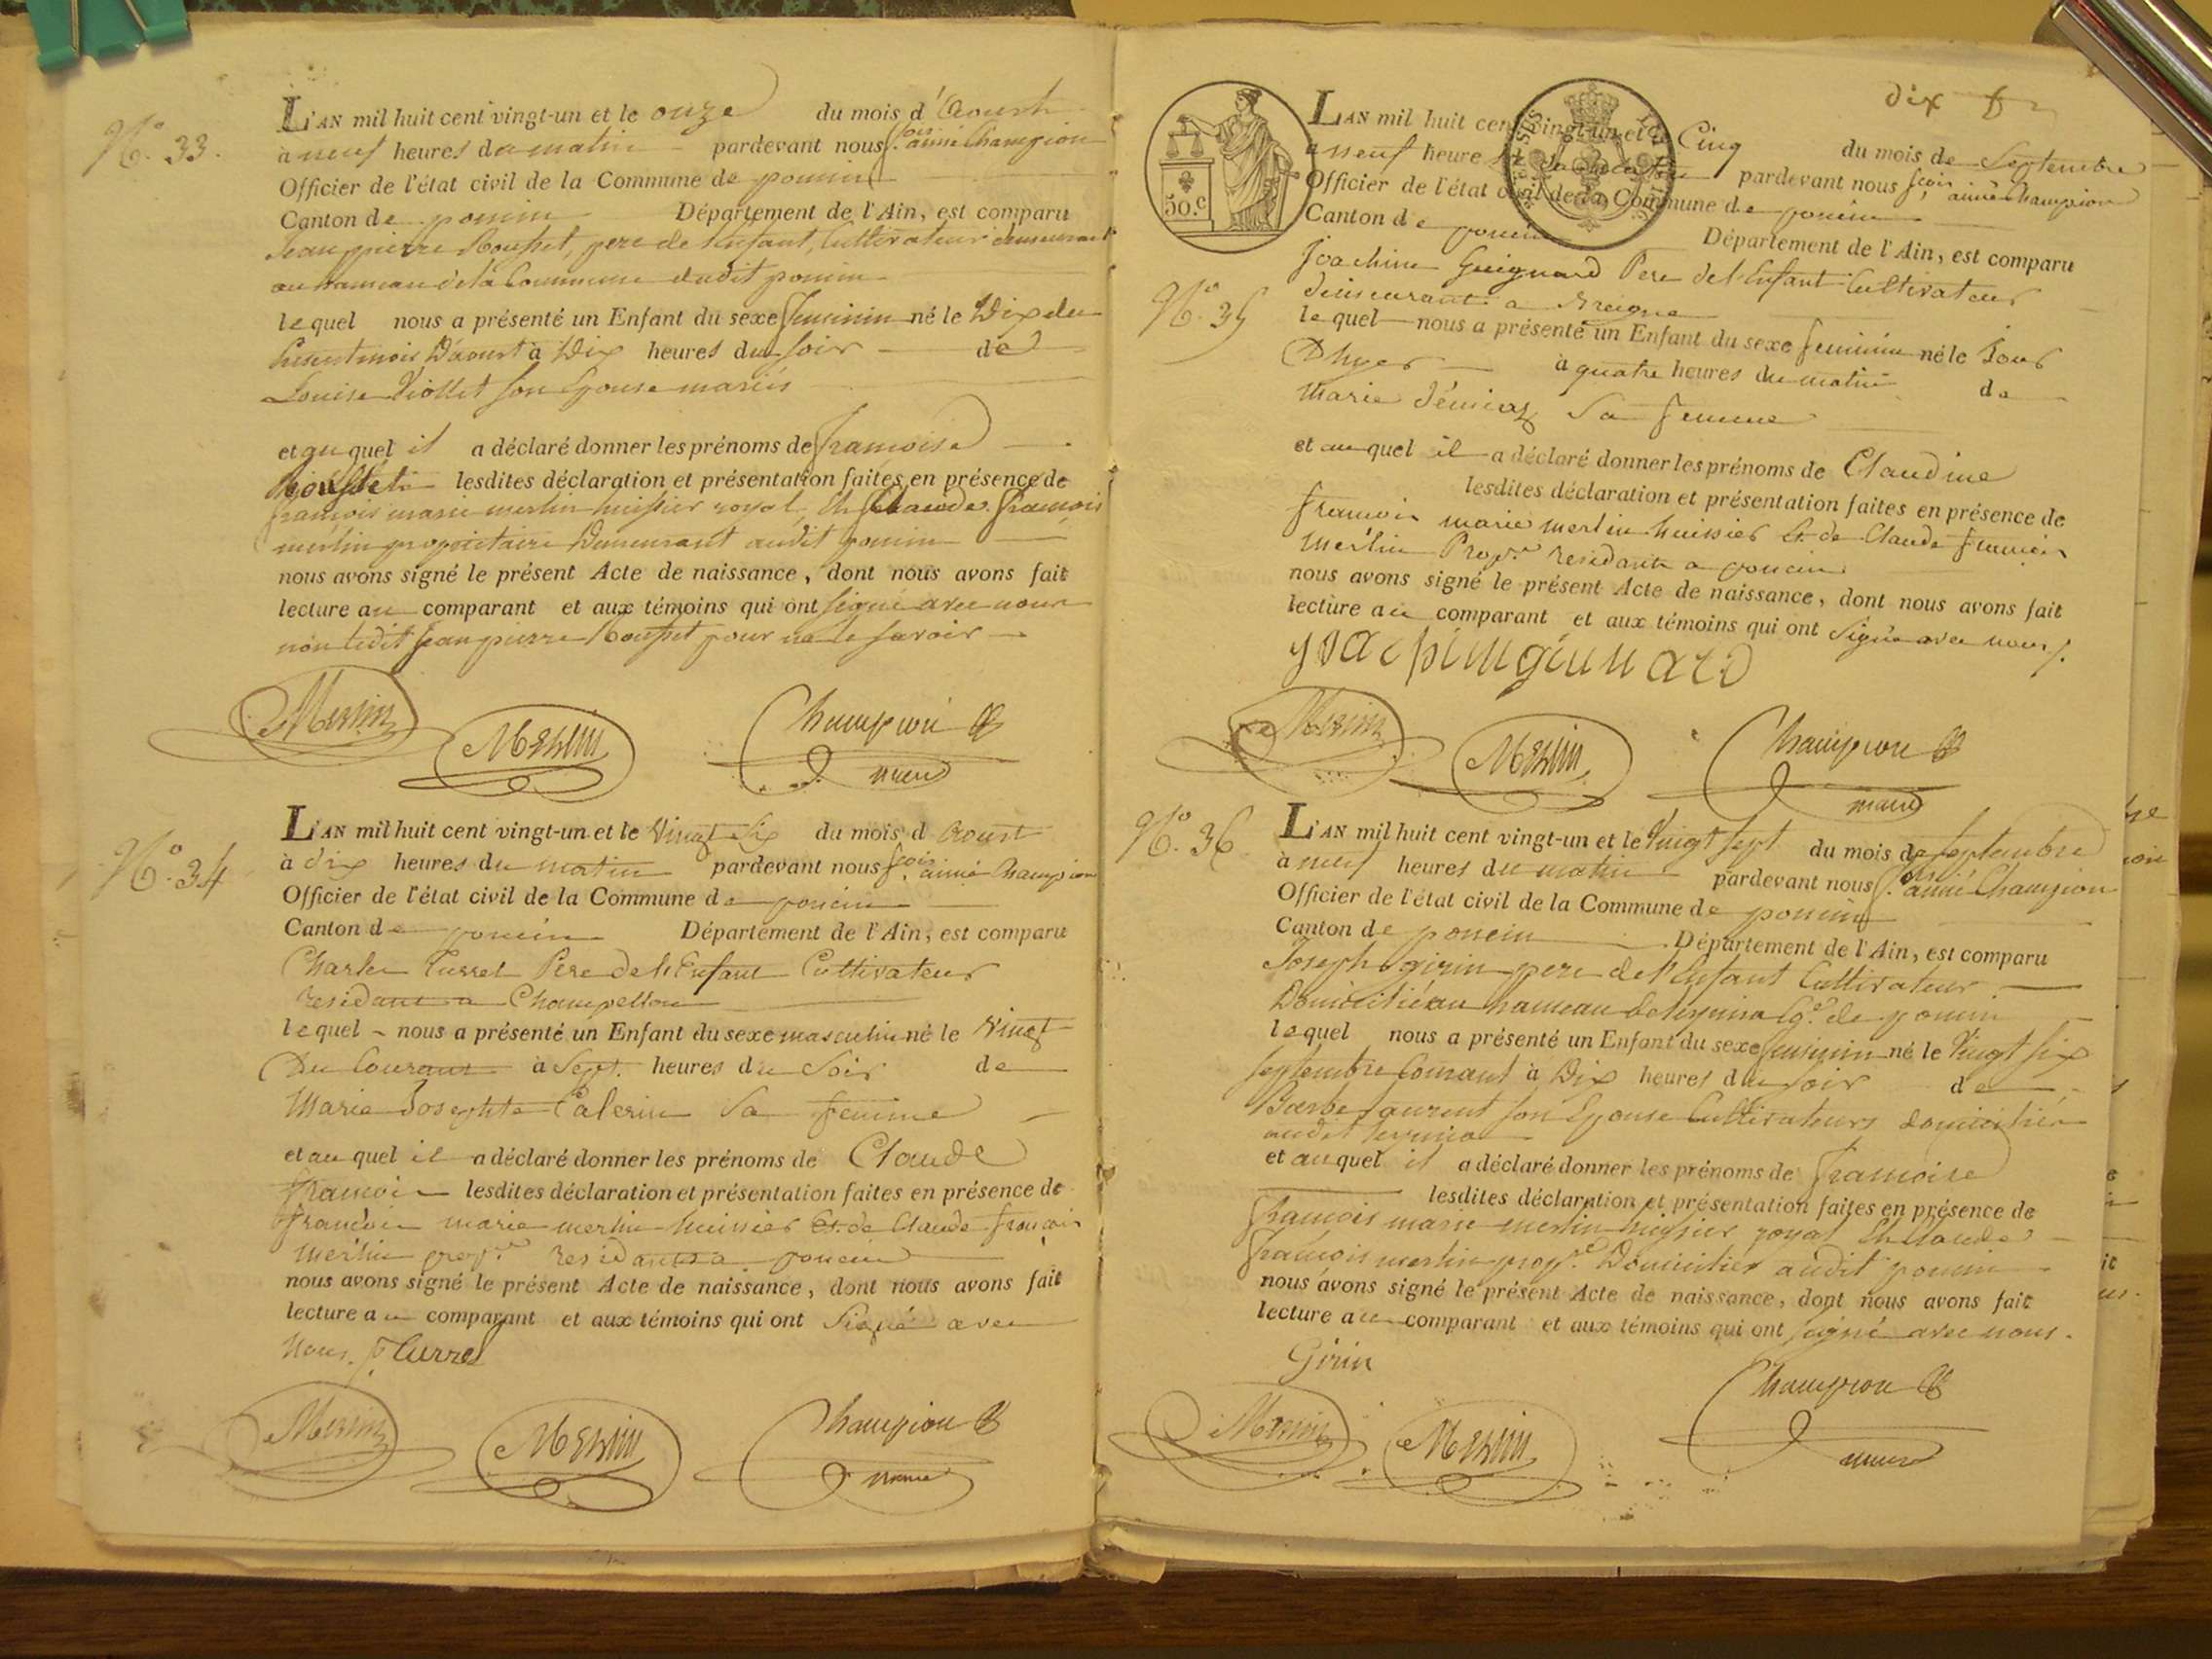 N.º 33.
L'AN mil huit cent vingt-un et le onze du mois d'Aoust
à neuf heures du matin pardevant nous f.cois aimé Champion
Officier de l'état civil de la Commune de poncin
Canton de poncin Département de l'Ain, est comparu
Jean pierre Rousset, pere de l'enfant, Cultivateur demeurant
au hameau de la Commune dudit poncin
lequel nous a présenté un Enfant du sexe feminin né le Dix du
present mois D'aoust à Dix heures du soir de
Louise Viollet son Epouse mariés
et au quel il a déclaré donner les prénoms de francoise
lesdites déclaration et présentation faites en présence de
françois marie merlin huissier royal, Et Claude françois
merlin propriétaire Demeurant audit poncin
nous avons signé le présent Acte de naissance, dont nous avons fait
lecture au comparant et aux témoins qui ont signé avec nous
non ledit Jean pierre Rousset pour ne le savoir
Merlin
Merlin
Champion
maire
N.º 34
L'AN mil huit cent vingt-un et le Vingt Six du mois d Aoust
à dix heures du matin pardevant nous f.cois aimé Champion
Officier de l'état civil de la Commune de poncin
Canton de poncin Département de l'Ain, est comparu
Charles Turrel Pere de l'Enfant Cultivateur
residant a Champellon
lequel nous a présenté un Enfant du sexe masculin né le Vingt
Du Courant à Sept heures du Soir de
Marie Josephte Calerin Sa femme
et au quel il a déclaré donner les prénoms de Claude
francois lesdites déclaration et présentation faites en présence de
francois marie merlin huissier Et de Claude francois
merlin prop.re residants a poncin
nous avons signé le présent Acte de naissance, dont nous avons fait
lecture au comparant et aux témoins qui ont Signé avec
nous. Turrel
Merlin
Merlin
Champion
maire
dix
50.c
L'AN mil huit cent vingt-un et le Cinq du mois de Septembre
a neuf heure pardevant nous fcois aimé Champion
Officier de l'état civil de la Commune de poncin
Canton de poncin Département de l'Ain, est comparu
Joachim Guignard Pere de l'Enfant Cultivateur
N.º 35
demeurant a Breigne
lequel nous a présenté un Enfant du sexe feminin né le Jour
D'hyer à quatre heures du matin de
Marie Sa femme
et au quel il a déclaré donner les prénoms de Claudine
lesdites déclaration et présentation faites en présence de
francois marie merlin huissier Et de Claude francois
Merlin Prop.re residants a poncin
nous avons signé le présent Acte de naissance, dont nous avons fait
lecture au comparant et aux témoins qui ont Signé avec nous /.
Merlin
Merlin
Champion
maire
N.º 36
L'AN mil huit cent vingt-un et le Vingt sept du mois de septembre
à neuf heures du matin pardevant nous f.cois aimé Champion
Officier de l'état civil de la Commune de poncin
Canton de poncin Département de l'Ain, est comparu
Joseph girin pere de l'Enfant Cultivateur
Domicilié au hameau de leymia C.e de poncin
lequel nous a présenté un Enfant du sexe feminin né le Vingt six
septembre Courant à Dix heures du soir de
Barbe Laurent son Epouse Cultivateurs domiciliés
audit leymia
et au quel il a déclaré donner les prénoms de francoise
lesdites déclaration et présentation faites en présence de
françois marie merlin huissier royal Et Claude
françois merlin prop.re Domiciliés audit poncin
nous avons signé le présent Acte de naissance, dont nous avons fait
lecture au comparant et aux témoins qui ont signé avec nous.
Girin
Merlin
Merlin
Champion
maire